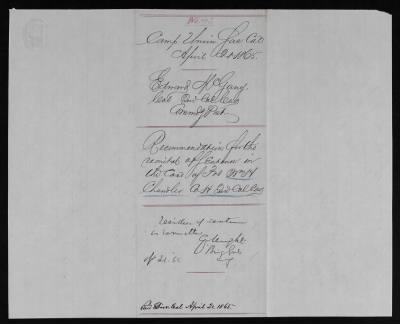 Camp Union Sac Cal
April 20 1865.
Edward McGarry
Col 2nd Cal Cav
Comdg Post
Recommendation for the
remittal of Sentence in
the Case of Pvt Wm H
Chandler Co H 2nd Cal Cav
residue of sentence
is remitted
G Wright
Brig Genl
Ap 21. 65
Recd Dist Cal April 21 1865.